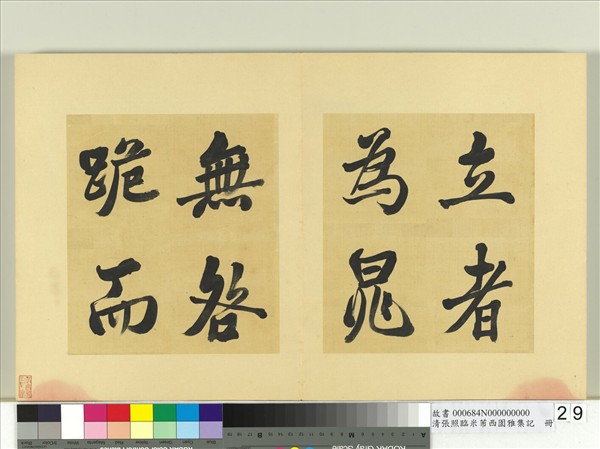 立者
為晁
無咎
跪而
故書 000684N000000000
清張照臨米芾西園雅集記 冊
29
KODAK Gray Scale